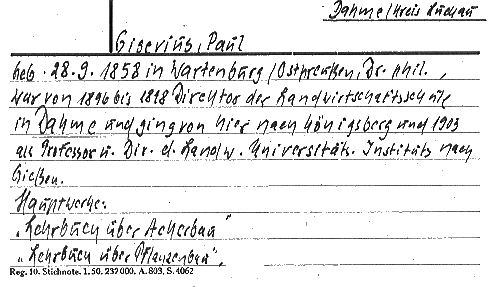 Dahme/Kreis Luckau
Gisevius, Paul
geb. 28.9.1858 in Wartenburg/Ostpreußen, Dr. phil.,
war von 1896 bis 1898 Direktor der Landwirtschaftsschule
in Dahme und ging von hier nach Königsberg und 1903
als Professor u. Dir. d. Landw. Universitäts. Instituts nach
Gießen.
Hauptwerke:
„Lehrbuch über Ackerbau"
„Lehrbuch über Pflanzenbau",
Reg. 10. Stichnote. 1. 50. 232000. A. 803, S. 4062